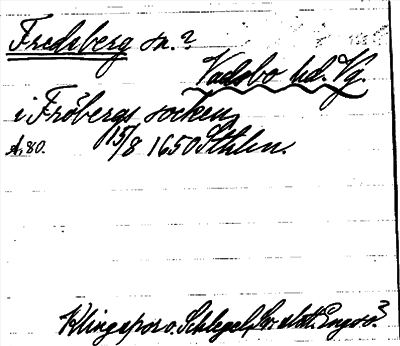 Fredsberg sn.?
Vadsbo hd. Vg.
i Fröbergs socken,
A: 80. 15/8 1650 Sthlm.
Klingspor o. Schlegel,